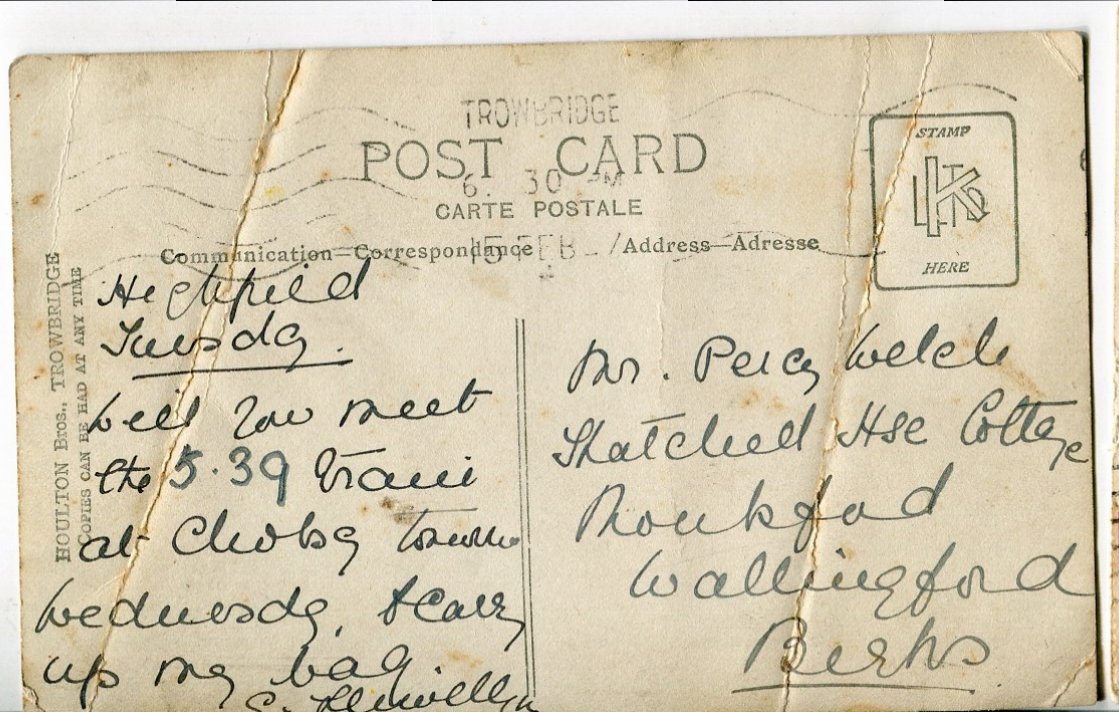 TROWBRIDGE
POST CARD
6. 30 PM
CARTE POSTALE
15 FEB
Communication—Correspondance / Address—Adresse
STAMP
HERE
HOULTON Bros., TROWBRIDGE
COPIES CAN BE HAD AT ANY TIME
Highfield
Tuesday.
Will you meet
the 5.39 train
at Cholsey
Wednesday, & carry
up my bag.
Mr. Percy Welch
Thatched Hse Cottage
Wallingford
Berks